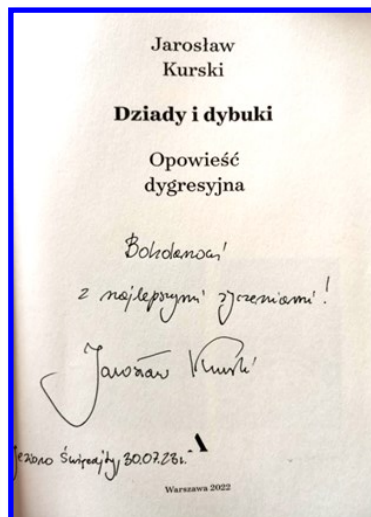 Jarosław
Kurski
Dziady i dybuki
Opowieść
dygresyjna
Bohdanowi
z najlepszymi życzeniami!
Jarosław Kurski
Jezioro Święcajty, 30.07.23r.
Warszawa 2022